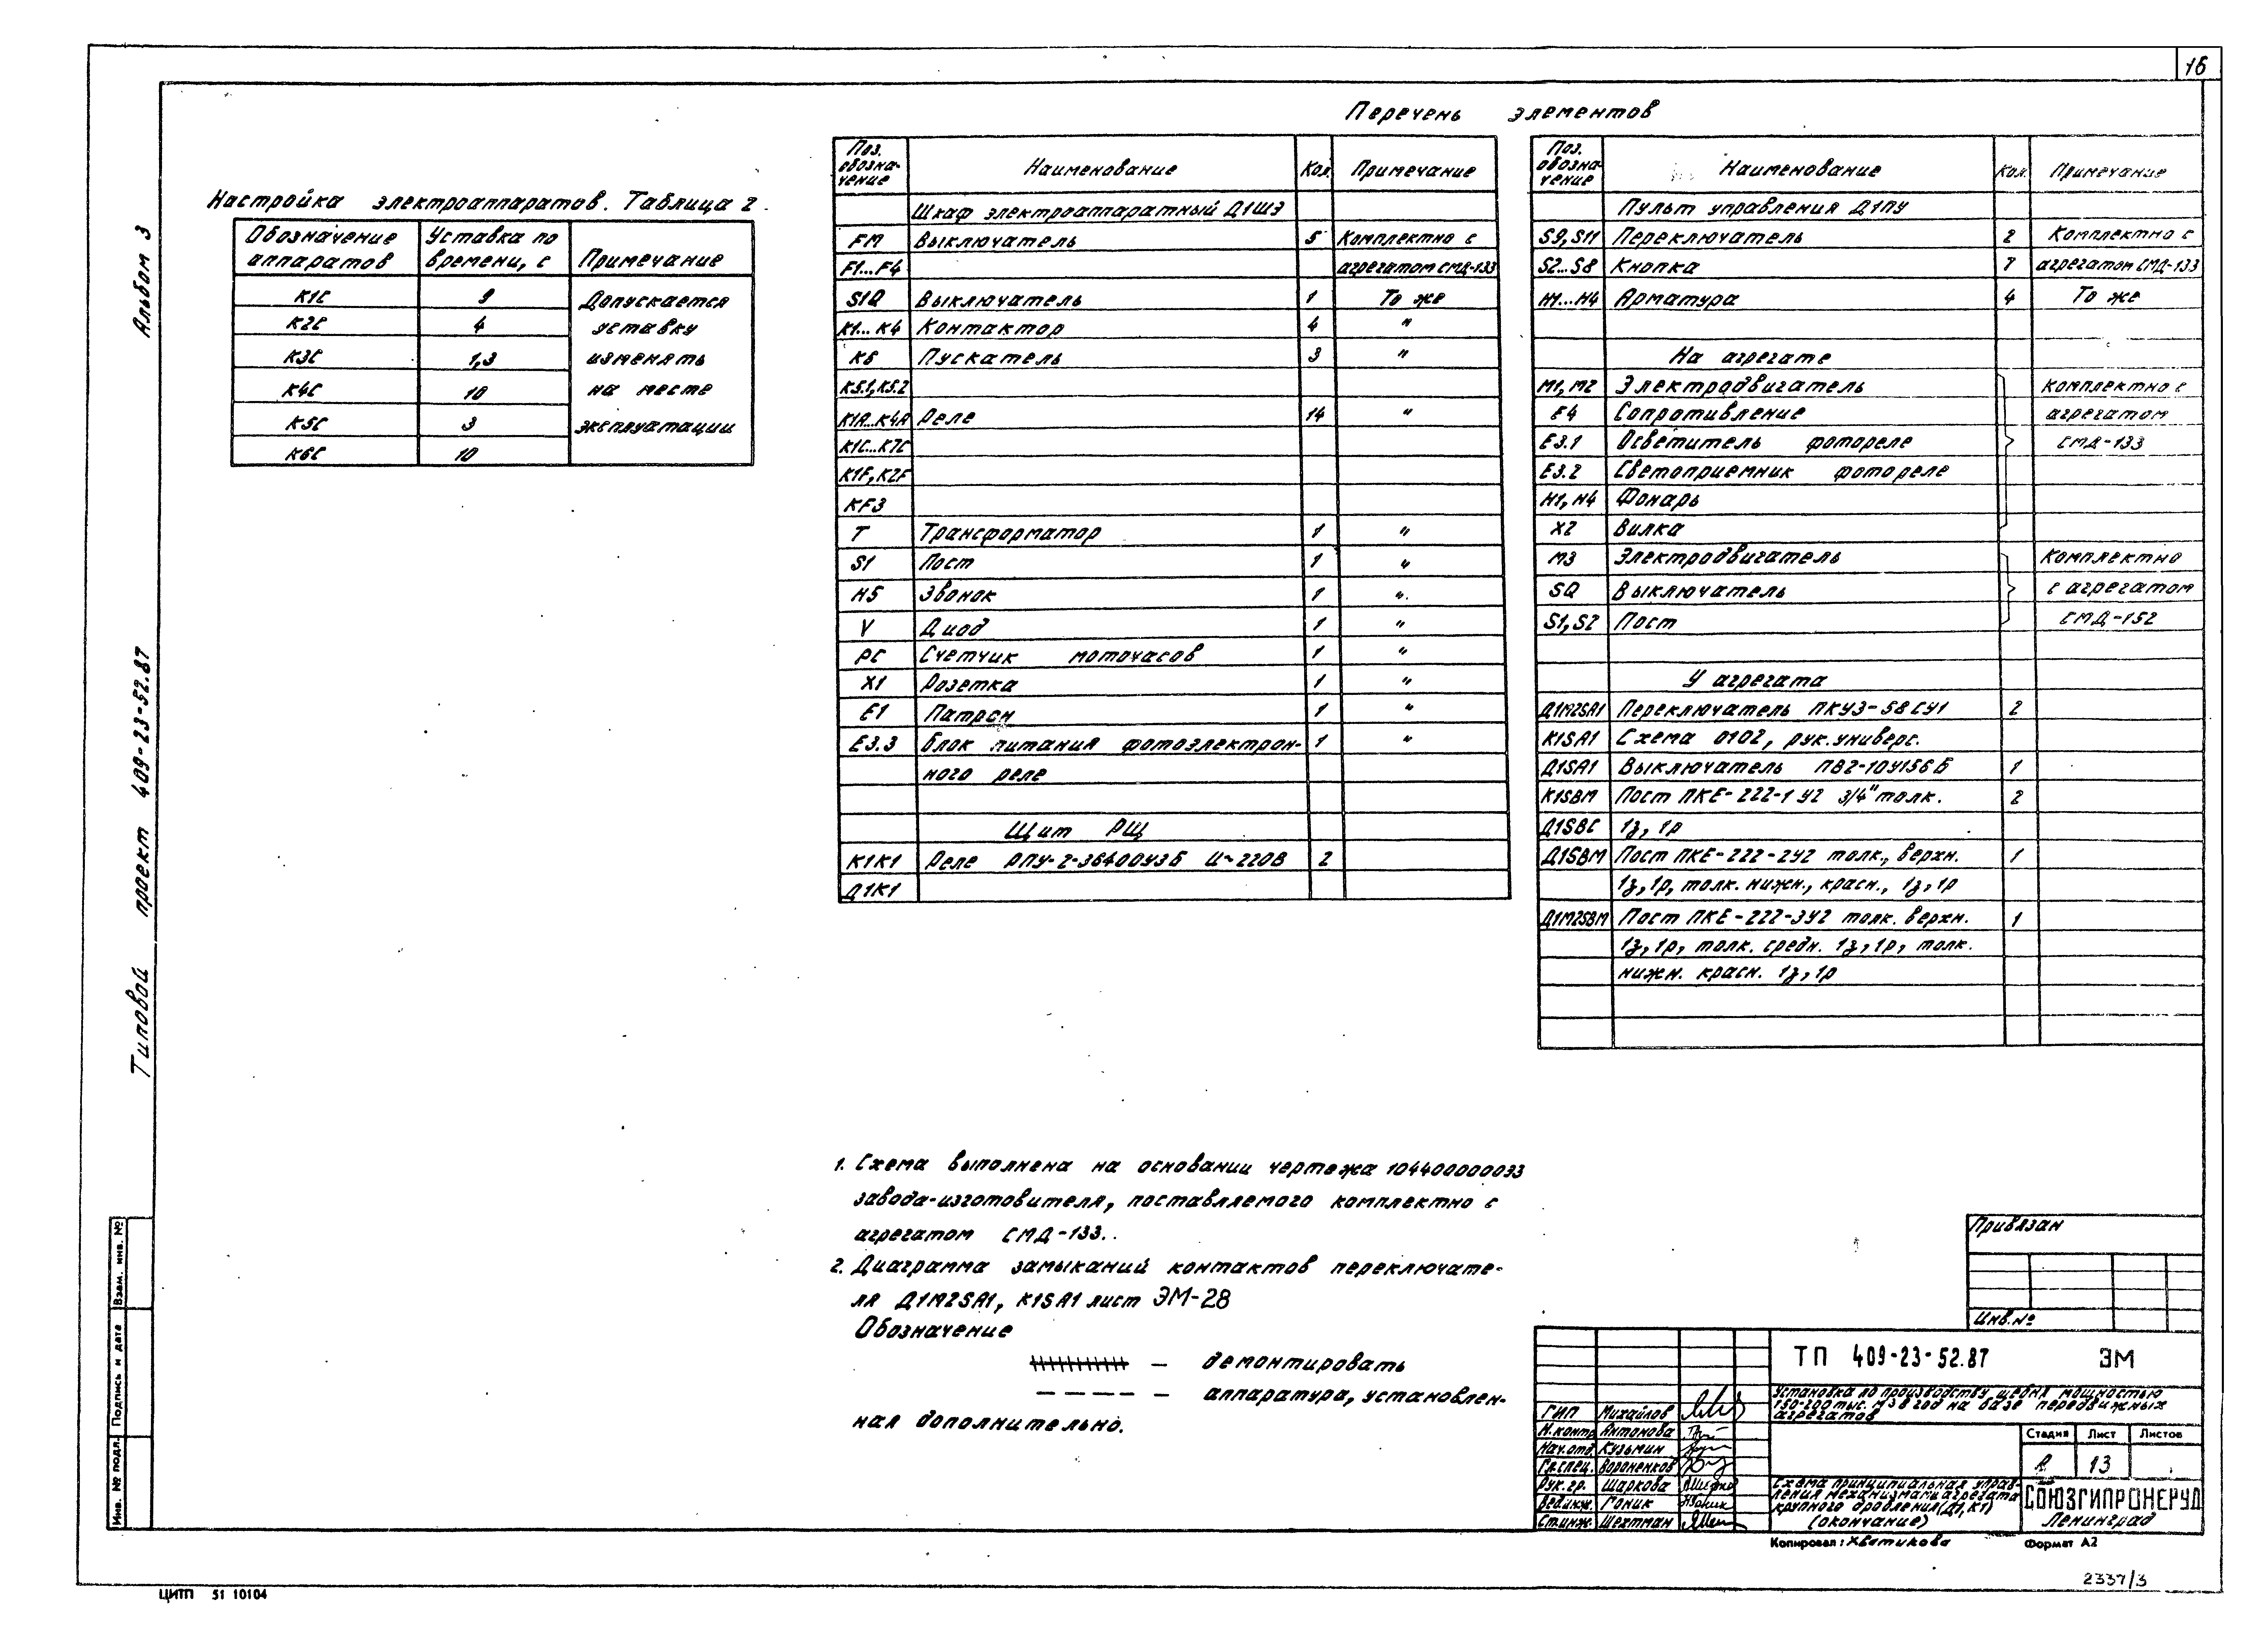 16
Альбом 3
Типовой проект 409-23-52.87
Настройка электроаппаратов. Таблица 2.
Обозначение аппаратов | Уставка по времени, с | Примечание
К1С | 9 | Допускается
К2С | 4 | уставку
К3С | 1,3 | изменять
К4С | 10 | на месте
К5С | 3 | эксплуатации
К6С | 10
Перечень элементов
Поз. обозначение | Наименование | Кол. | Примечание
Шкаф электроаппаратный Д1ШЭ
FM | Выключатель | 5 | Комплектно с
F1...F4 | агрегатом СМД-133
S1Q | Выключатель | 1 | То же
К1...К4 | Контактор | 4 | "
К6 | Пускатель | 3 | "
К5.1, К5.2
К1А...К4А | Реле | 14 | "
К1С...К7С
К1F, К2F
КF3
Т | Трансформатор | 1 | "
S1 | Пост | 1 | "
Н5 | Звонок | 1 | "
V | Диод | 1 | "
РС | Счетчик моточасов | 1 | "
Х1 | Розетка | 1 | "
Е1 | Патрон | 1 | "
Е3.3 | Блок питания фотоэлектрон- | 1 | "
ного реле
Щит РЩ
К1К1 | Реле РПУ-2-36400У3Б И~220В | 2
Д1К1
Поз. обозначение | Наименование | Кол. | Примечание
Пульт управления Д1ПУ
S9, S11 | Переключатель | 2 | Комплектно с
S2...S8 | Кнопка | 7 | агрегатом СМД-133
Н1...Н4 | Арматура | 4 | То же
На агрегате
М1, М2 | Электродвигатель | Комплектно с
Е4 | Сопротивление | агрегатом
Е3.1 | Осветитель фотореле | СМД-133
Е3.2 | Светоприемник фотореле
Н1, Н4 | Фонарь
Х2 | Вилка
М3 | Электродвигатель | Комплектно
SQ | Выключатель | с агрегатом
S1, S2 | Пост | СМД-152
У агрегата
Д1М2SA1 | Переключатель ПКУ3-58СУ1 | 2
К1SA1 | Схема 0102, рук. универс.
Д1SA1 | Выключатель ПВ2-10У156Б | 1
К1SBM | Пост ПКЕ-222-1У2 3/4" толк. | 2
Д1SBC | 1з, 1р
Д1SBM | Пост ПКЕ-222-2У2 толк., верхн. | 1
1з, 1р, толк. нижн., красн., 1з, 1р
Д1М2SBM | Пост ПКЕ-222-3У2 толк. верхн. | 1
1з, 1р, толк. средн. 1з, 1р, толк.
нижн. красн. 1з, 1р
1. Схема выполнена на основании чертежа 104400000033
завода-изготовителя, поставляемого комплектно с
агрегатом СМД-133.
2. Диаграмма замыканий контактов переключате-
ля Д1М2SA1, К1SA1 лист ЭМ-28
Обозначение
— демонтировать
— аппаратура, установлен-
ная дополнительно.
Привязан
Инв. №
ТП 409-23-52.87 ЭМ
Установка по производству щебня мощностью
150-200 тыс. м3 в год на базе передвижных
агрегатов
ГИП Михайлов
Н.контр. Антонова
Нач.отд. Кузьмин
Гл.спец. Вороненков
Рук.гр. Шаркова
Вед.инж. Гоник
Ст.инж. Шехтман
Стадия Лист Листов
Р 13
Схема принципиальная управ-
ления механизмами агрегата
крупного дробления (Д1, К1)
(окончание)
СОЮЗГИПРОНЕРУД
Ленинград
Копировал: Хватикова Формат А2
Инв. № подл. Подпись и дата Взам. инв. №
ЦИТП 51 10104
2337/3